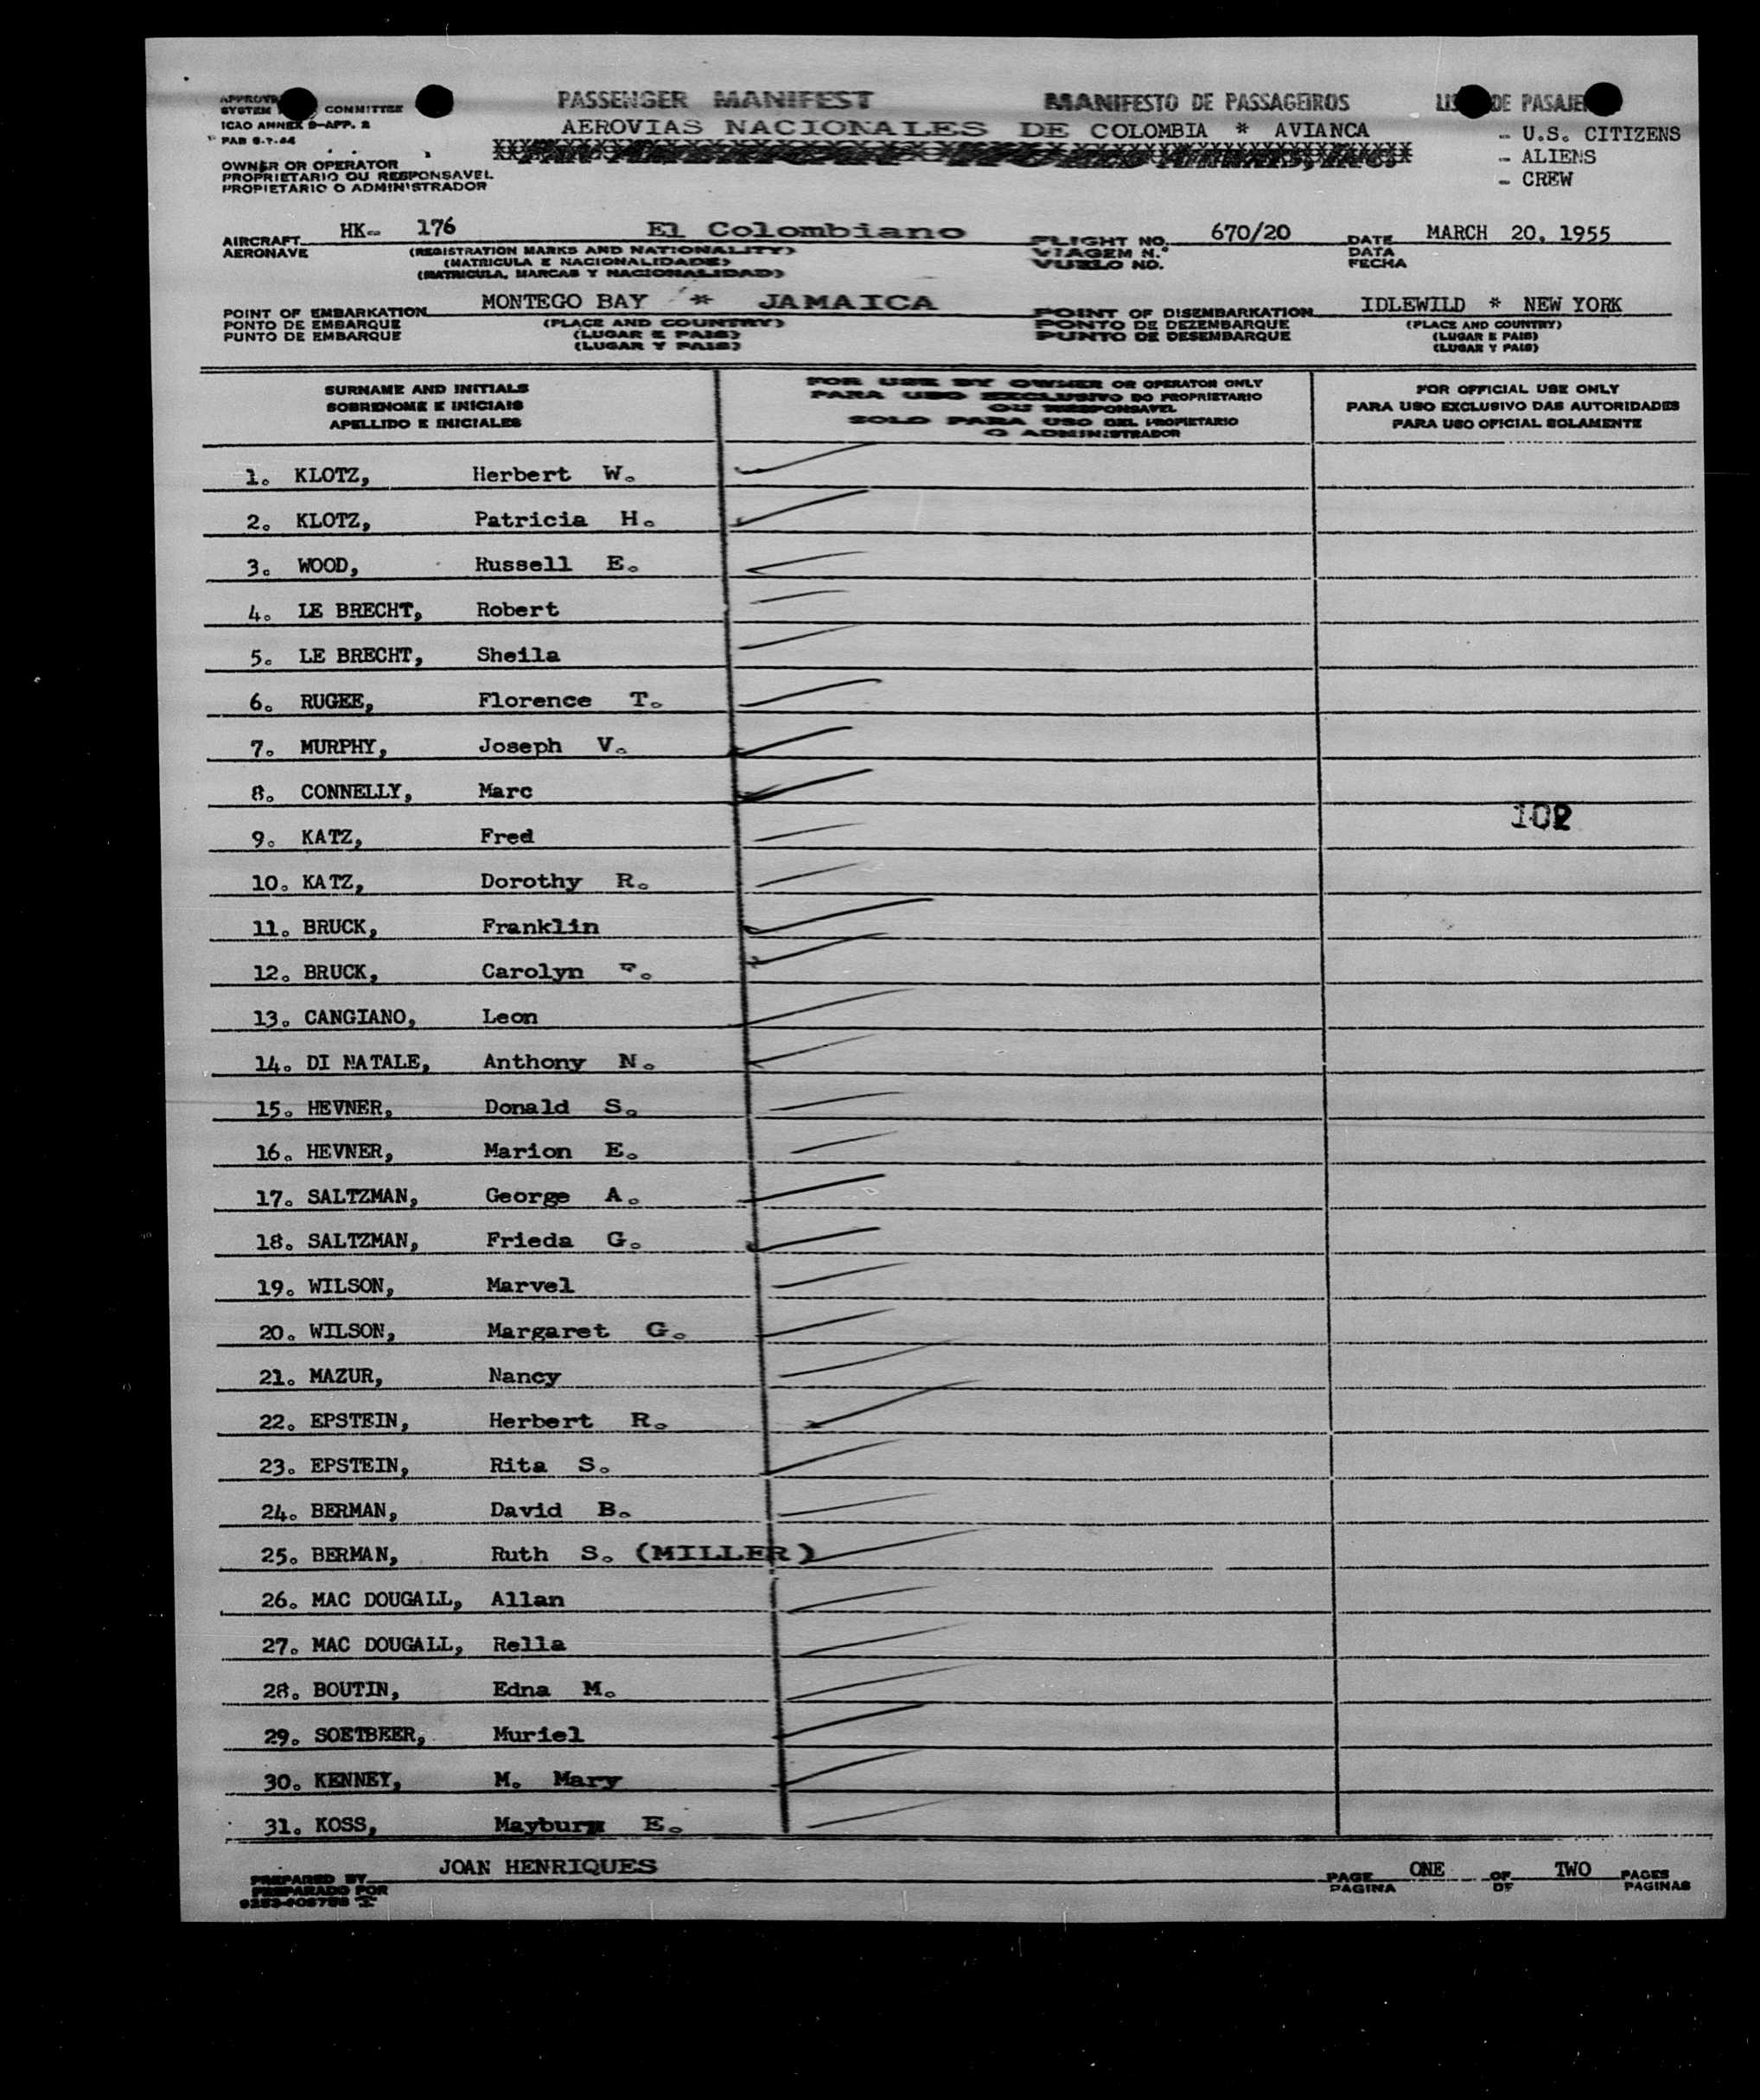 PASSENGER MANIFEST MANIFESTO DE PASSAGEIROS DE
SYSTEM COMMITTEE
ICAO ANNEX 9-APP. 2
AEROVIAS NACIONALES DE COLOMBIA * AVIANCA
- U.S. CITIZENS
- ALIENS
- CREW
OWNER OR OPERATOR
PROPRIETARIO OU RESPONSAVEL
PROPIETARIO O ADMINISTRADOR
AIRCRAFT HK- 176 El Colombiano FLIGHT NO. 670/20 DATE MARCH 20, 1955
AERONAVE (REGISTRATION MARKS AND NATIONALITY) VIAGEM N.° DATA
(MATRICULA E NACIONALIDADE) VUELO NO. FECHA
(MATRICULA, MARCAS Y NACIONALIDAD)
POINT OF EMBARKATION MONTEGO BAY * JAMAICA POINT OF DISEMBARKATION IDLEWILD * NEW YORK
PONTO DE EMBARQUE (PLACE AND COUNTRY) PONTO DE DEZEMBARQUE (PLACE AND COUNTRY)
PUNTO DE EMBARQUE (LUGAR E PAIS) PUNTO DE DESEMBARQUE (LUGAR E PAIS)
(LUGAR Y PAIS) (LUGAR Y PAIS)
SURNAME AND INITIALS
SOBRENOME E INICIAIS
APELLIDO E INICIALES
FOR USE BY OWNER OR OPERATOR ONLY
PARA USO EXCLUSIVO DO PROPRIETARIO
OU RESPONSAVEL
SOLO PARA USO DEL PROPIETARIO
O ADMINISTRADOR
FOR OFFICIAL USE ONLY
PARA USO EXCLUSIVO DAS AUTORIDADES
PARA USO OFICIAL SOLAMENTE
1. KLOTZ, Herbert W.
2. KLOTZ, Patricia H.
3. WOOD, Russell E.
4. LE BRECHT, Robert
5. LE BRECHT, Sheila
6. RUGEE, Florence T.
7. MURPHY, Joseph V.
8. CONNELLY, Marc
102
9. KATZ, Fred
10. KATZ, Dorothy R.
11. BRUCK, Franklin
12. BRUCK, Carolyn F.
13. CANGIANO, Leon
14. DI NATALE, Anthony N.
15. HEVNER, Donald S.
16. HEVNER, Marion E.
17. SALTZMAN, George A.
18. SALTZMAN, Frieda G.
19. WILSON, Marvel
20. WILSON, Margaret G.
21. MAZUR, Nancy
22. EPSTEIN, Herbert R.
23. EPSTEIN, Rita S.
24. BERMAN, David B.
25. BERMAN, Ruth S. (MILLER)
26. MAC DOUGALL, Allan
27. MAC DOUGALL, Rella
28. BOUTIN, Edna M.
29. SOETBEER, Muriel
30. KENNEY, M. Mary
31. KOSS, E.
PREPARED BY JOAN HENRIQUES PAGE ONE OF TWO PAGES
PREPARADO POR PAGINA DE PAGINAS